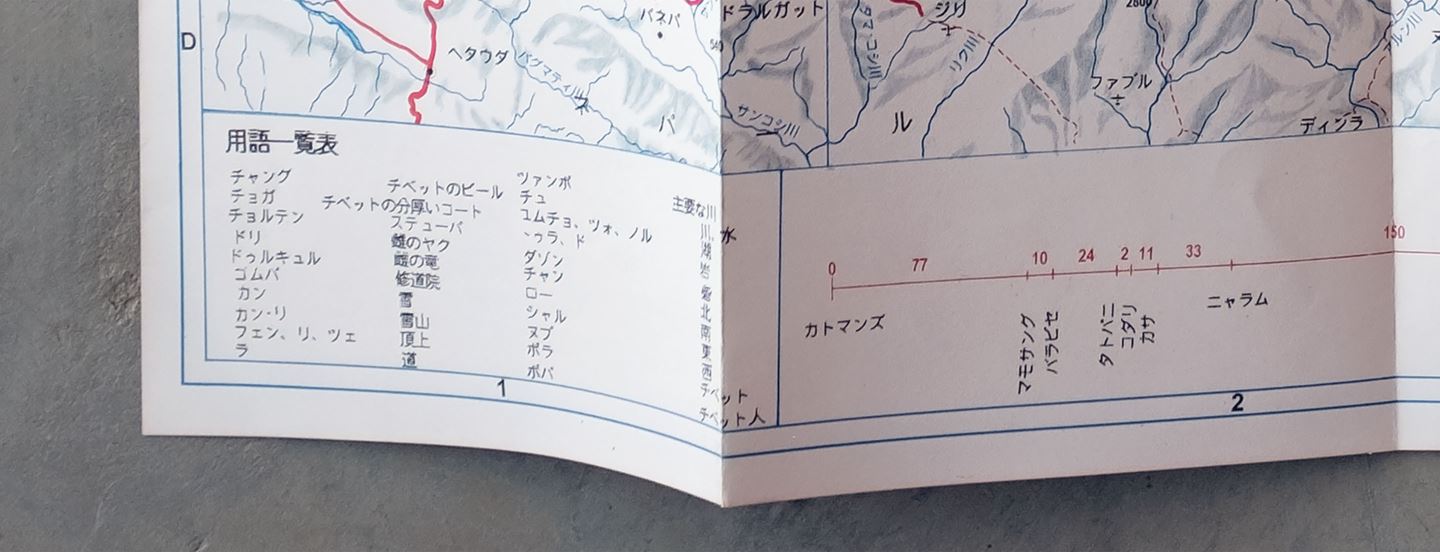 D
ヘタウダ
バグマティ川
バネパ
ドラルガット
ジリ
リク川
ファプル
ディンラ
サンコシ川
ネ
パ
ル
用語一覧表
チャング チベットのビール
チョガ チベットの分厚いコート
チョルテン ステューパ
ドリ 雌のヤク
ドゥルキュル 雌の竜
ゴムパ 修道院
カン 雪
カン・リ 雪山
フェン、リ、ツェ 頂上
ラ 道
ツァンポ 主要な川
チュ 川、水
ユムチョ、ツォ、ノル 湖
ダゾン
チャン 北
ロー 南
シャル 東
ヌプ 西
ボラ チベット
ボパ チベット人
0 77 10 24 2 11 33 150
カトマンズ
マモサング
バラビセ
タトパニ
コダリ
カサ
ニャラム
1
2